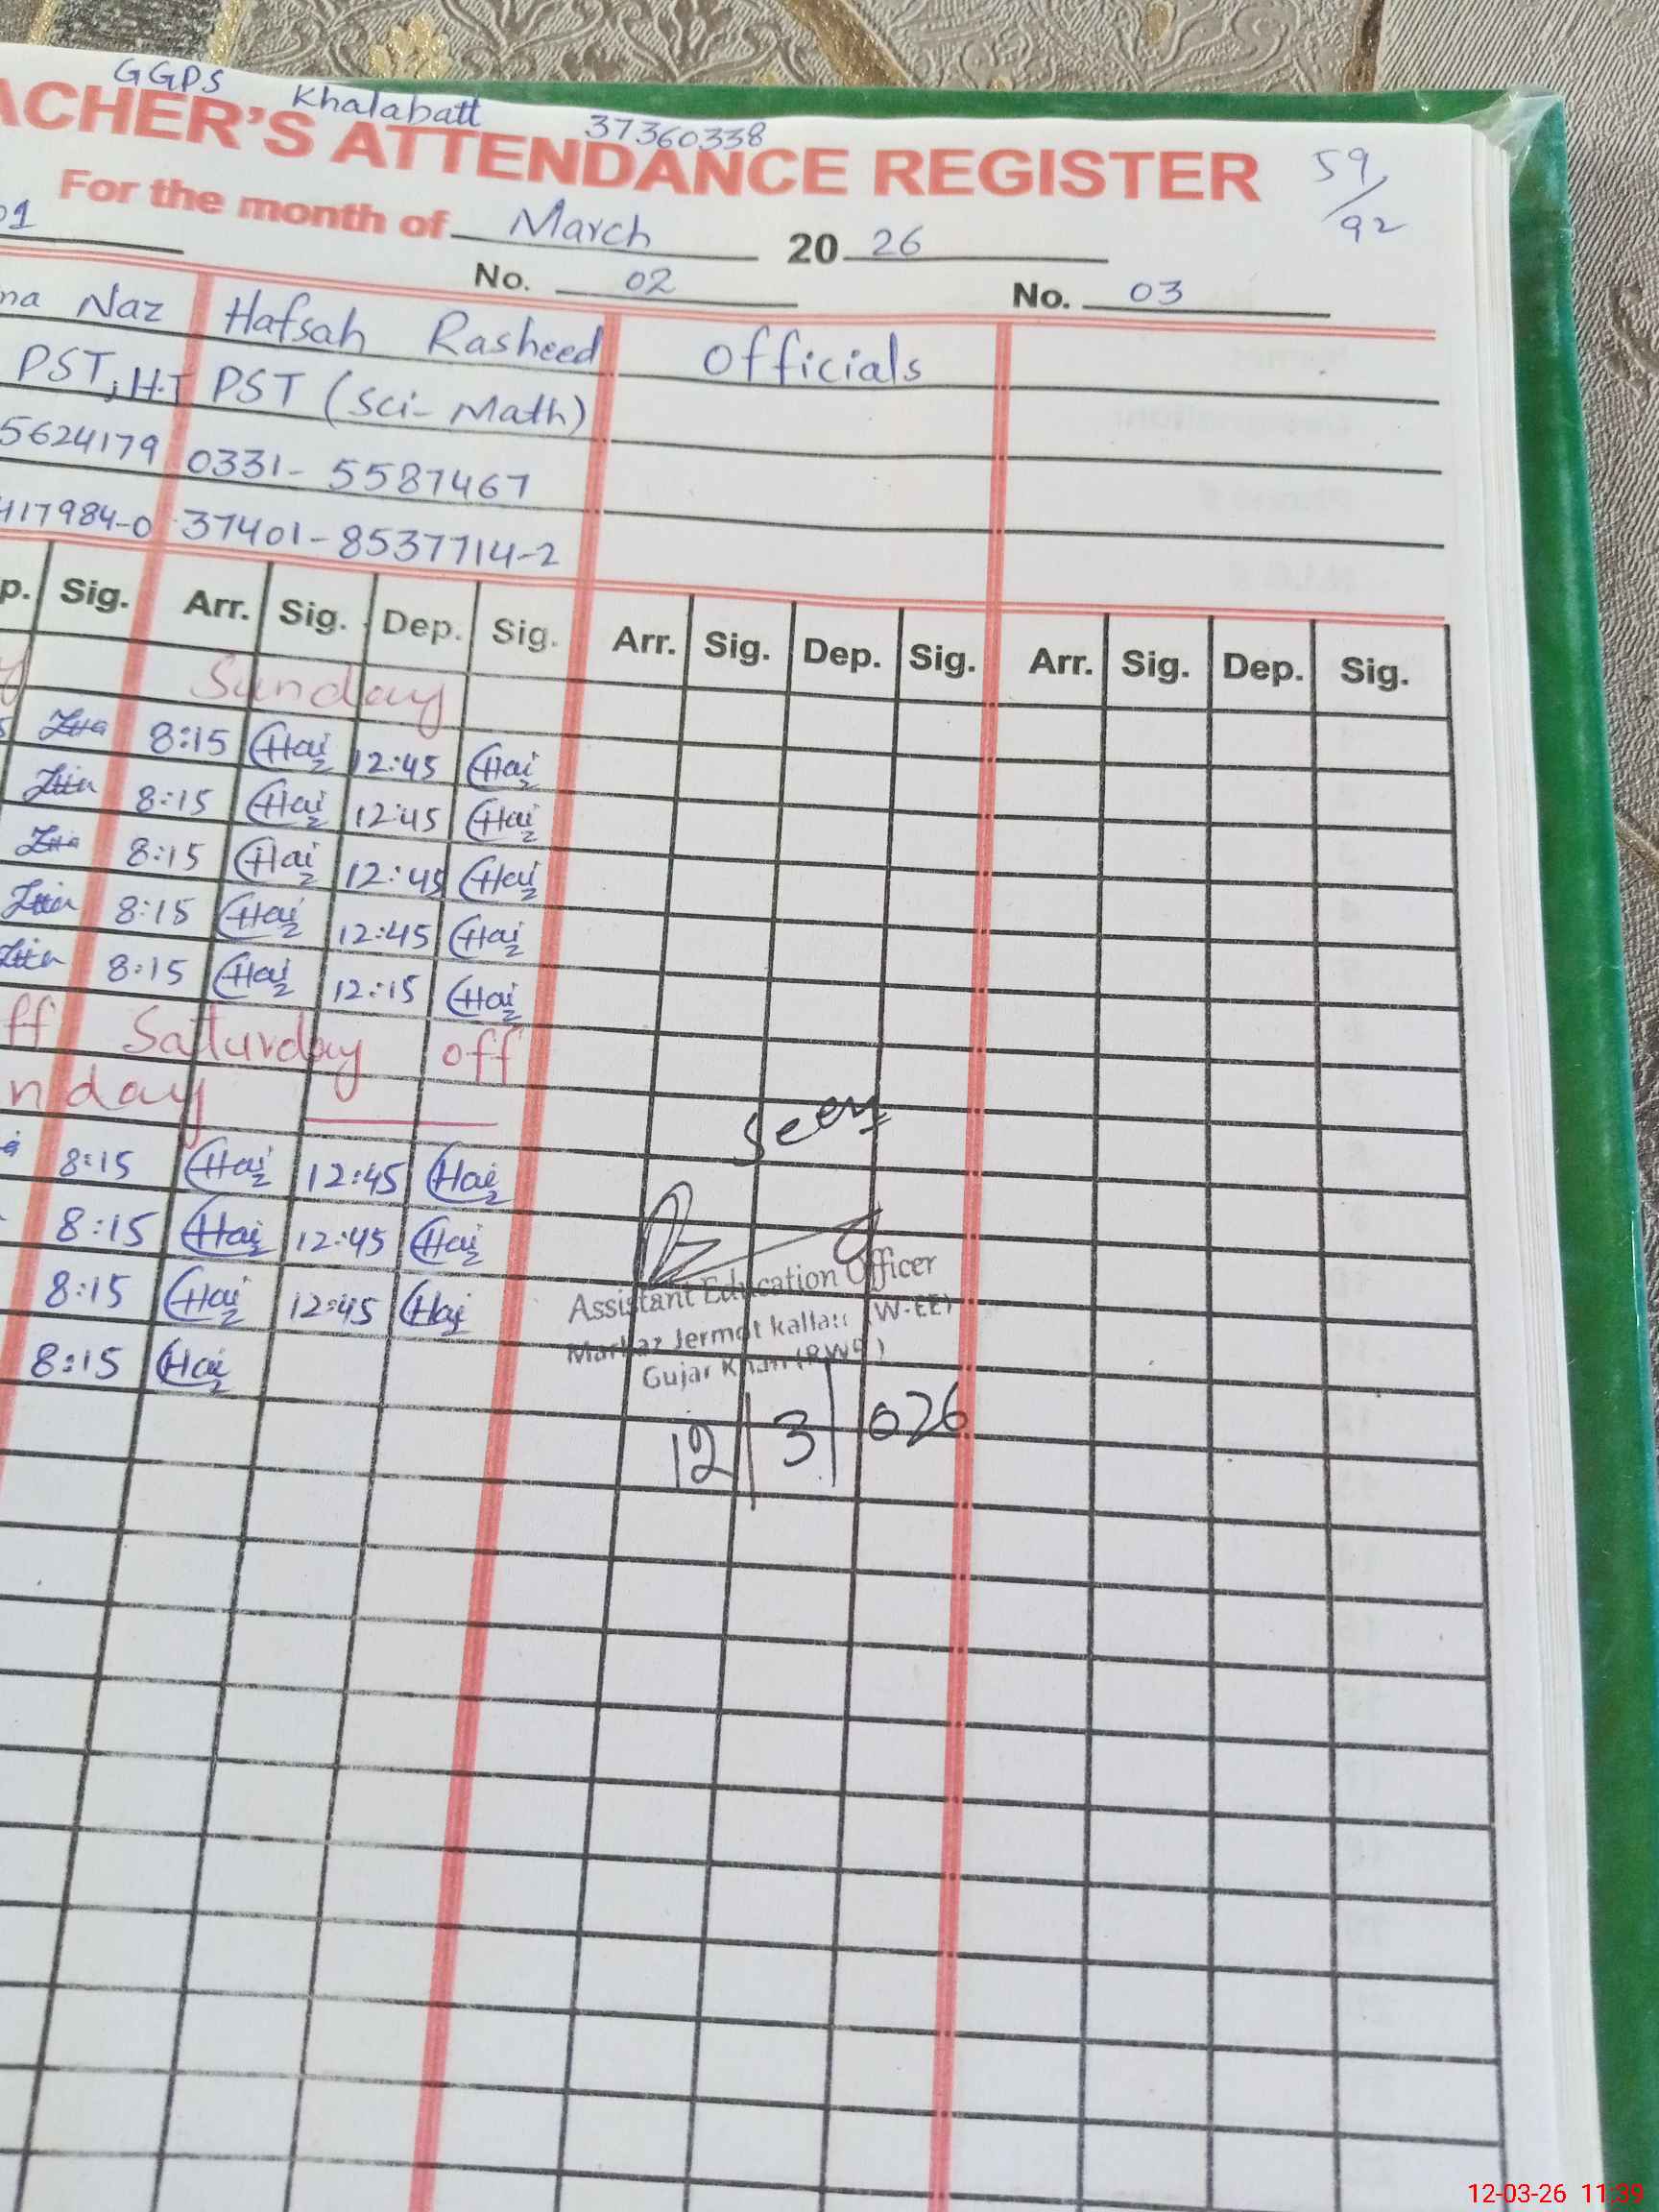 GGPS Khalabatt 37360338
ACHER'S ATTENDANCE REGISTER 59/92
For the month of March 20 26
01 No. 02 No. 03
na Naz Hafsah Rasheed Officials
PST, H.T PST (Sci- Math)
5624179 0331- 5587467
417984-0 37401-8537714-2
p. Sig. Arr. Sig. Dep. Sig. Arr. Sig. Dep. Sig. Arr. Sig. Dep. Sig.
y Sunday
8:15 Haj 12:45 Haj
8:15 Haj 12:45 Haj
8:15 Haj 12:45 Haj
8:15 Haj 12:45 Haj
8:15 Haj 12:15 Haj
ff Satturday off
nday
Seen
8:15 Haj 12:45 Haj
8:15 Haj 12:45 Haj
8:15 Haj 12:45 Haj
8:15 Haj
Assistant Education Officer
Markaz Jermot kallan (W-EE)
Gujar Khan (RWP)
12/3/026
12-03-26 11:39